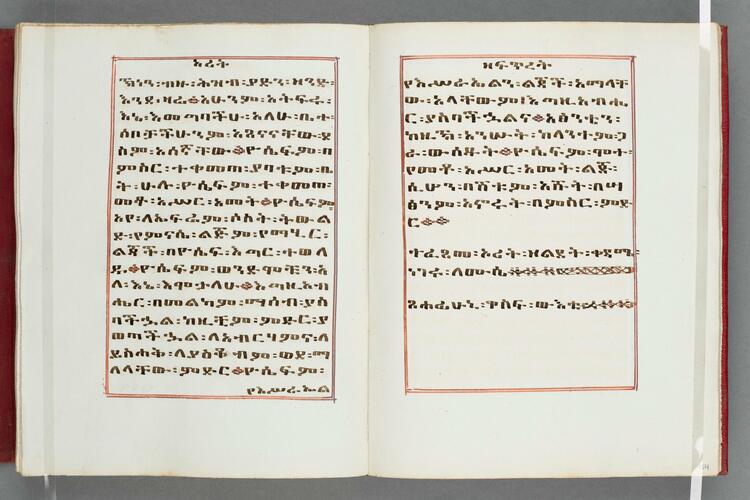 ኦሪት
ኧነን፡ብዙ፡ሕዝብ፡ያድን፡ዘንድ፡
እንደ፡ዛሬ፨አሁንም፡አትፍሩ፡
እኔ፡እመግባችሁ፡አለሁ፡ቤተ፡
ሰቦቻችሁንም፡አጽናናቸው፡ደ
ስም፡አሰኛቸው፨ዮሴፍም፡በ
ምስር፡ተቀመጠ፡ያባቱም፡ቤ
ት፡ሁሉ፡ዮሴፍም፡ተቀመጠ፡
መቶ፡አሥር፡አመት፨ዮሴፍም፡
አየ፡ለኤፍሬም፡ሶስት፡ትውል
ድ፡የምናሴ፡ልጅም፡የማኪር፡
ልጆች፡በዮሴፍ፡እጣር፡ተወለ
ዱ፨ዮሴፍም፡ወንድሞቹን፡አ
ለ፡እኔ፡እሞታለሁ፨እግዚአብ
ሔር፡በመልካም፡ማሰብ፡ያስ
ባችኋል፡ከዚችም፡ምድር፡ያ
ወጣችኋል፡ለአብርሃምና፡ለ
ይስሐቅ፡ለያዕቆብም፡ወደ፡ማ
ለላቸው፡ምድር፨ዮሴፍም፡
የእሥራኤል
ዘፍጥረት
የእሥራኤልን፡ልጆች፡አማላቸ
ው፡አላቸውም፡እግዚአብሔ
ር፡ያስባችኋል፨አፅሜን፡
ከዚኽ፡አንሡት፡ከእናንተም፡ጋ
ራ፡ውሰዱት፨ዮሴፍም፡ሞተ፡
የመቶ፡አሥር፡አመት፡ልጅ፡
ሲሁን፡በሽቱም፡አሹት፡በሣ
ፅንም፡አኖሩት፡በምስር፡ምድ
ር፨
ተፈጸመ፡ኦሪት፡ዘልደት፡ቀዳማ፡
ነገሩ፡ለሙሴ